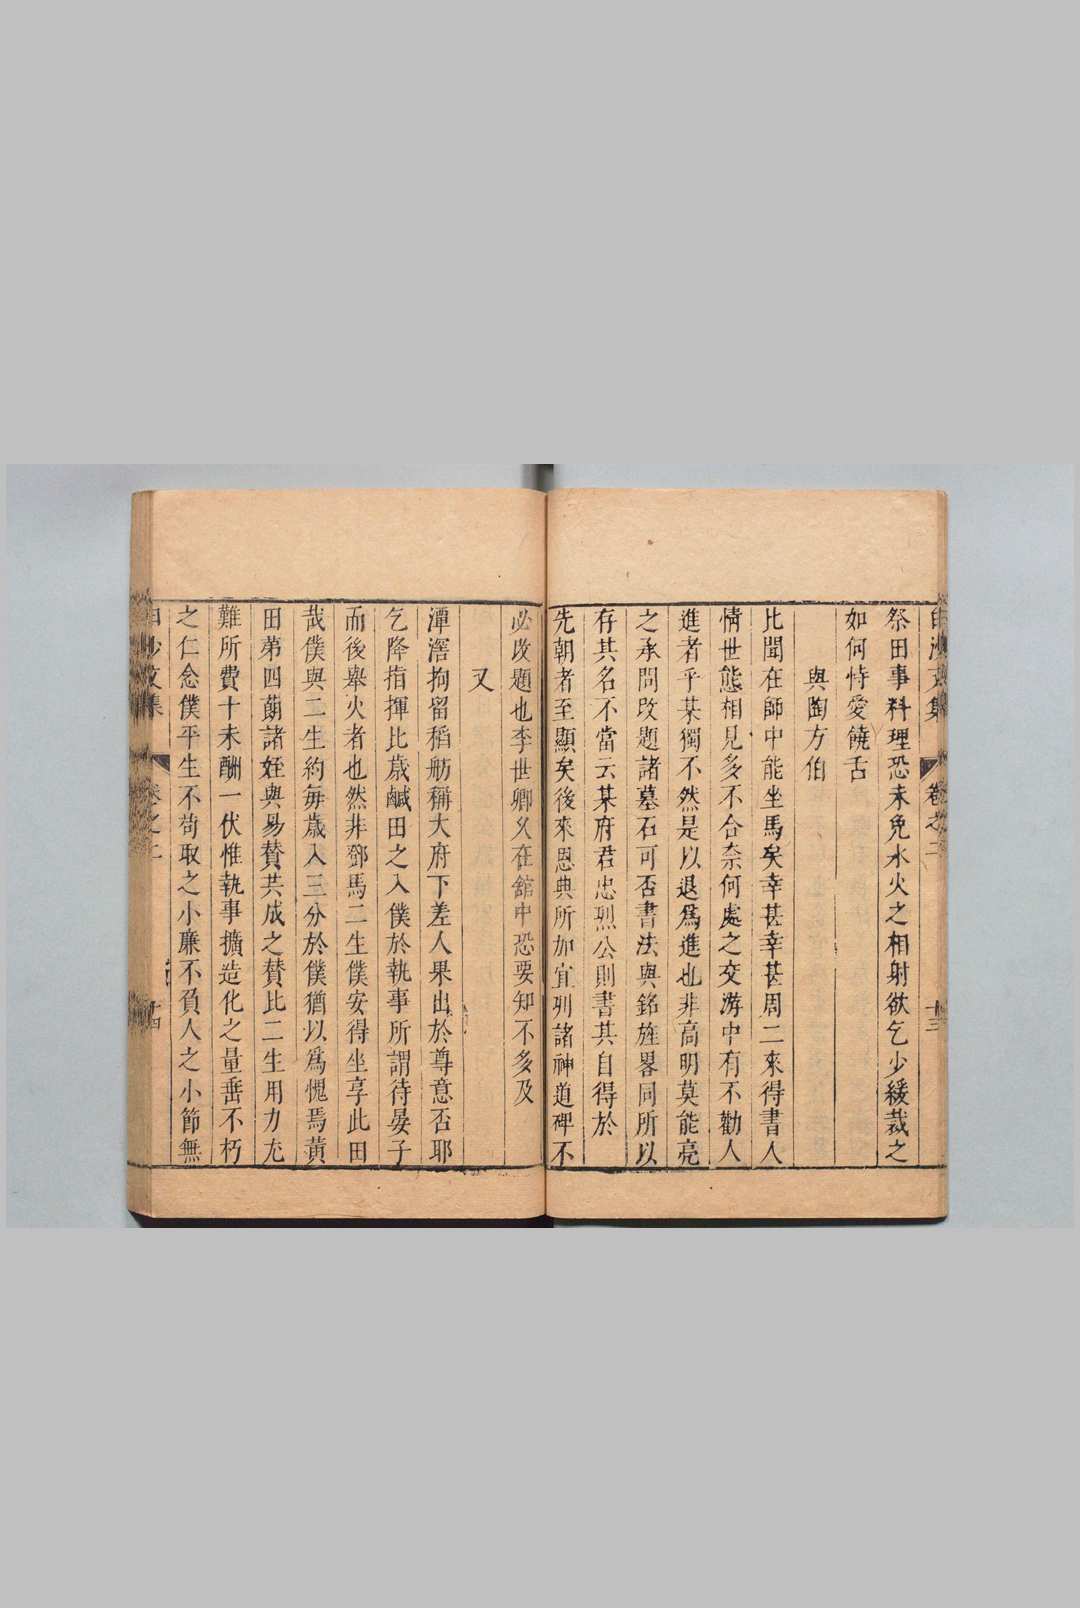 白沙文集 卷之二 十三
祭田事料理恐未免水火之相射欲乞少緩裁之
如何恃愛饒舌
與陶方伯
比聞在師中能坐馬矣幸甚幸甚周二來得書人
情世態相見多不合奈何處之交游中有不勸人
進者乎某獨不然是以退爲進也非高明莫能亮
之承問改題諸墓石可否書法與銘旌畧同所以
存其名不當云某府君忠烈公則書其自得於
先朝者至顯矣後來恩典所加宜列諸神道碑不
必改題也李世卿久在館中恐要知不多及
又
潭滘拘留稻舫稱大府下差人果出於尊意否耶
乞降指揮比歲鹹田之入僕於執事所謂待晏子
而後舉火者也然非鄧馬二生僕安得坐享此田
哉僕與二生約每歲入三分於僕猶以爲愧焉黃
田第四蓢諸姪與易贊共成之贊比二生用力尤
難所費十未酬一伏惟執事擴造化之量垂不朽
之仁念僕平生不苟取之小廉不負人之小節無
白沙文集 卷之二 十四